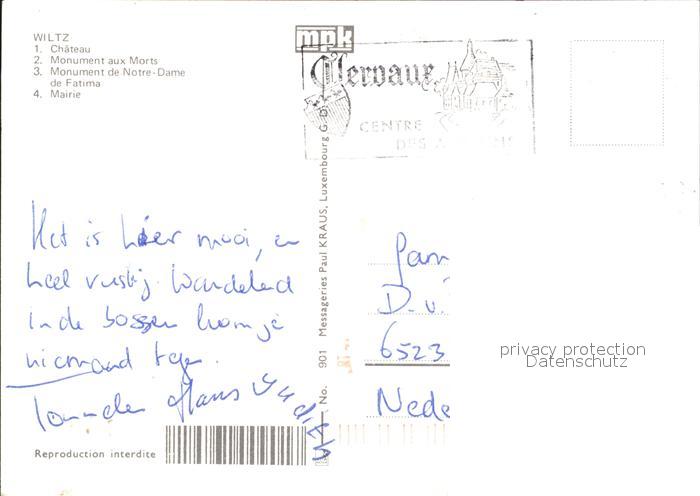 WILTZ
1. Château
2. Monument aux Morts
3. Monument de Notre-Dame
de Fatima
4. Mairie
mpk
Clervaux
CENTRE
DES
Het is hier mooi, en
heel rustig. Wandelend
in de bossen kom je
niemand tegen.
Hans
Reproduction interdite
No. 901 Messageries Paul KRAUS, Luxembourg G. D.
Fam
D. v.
6523
Nede
privacy protection
Datenschutz